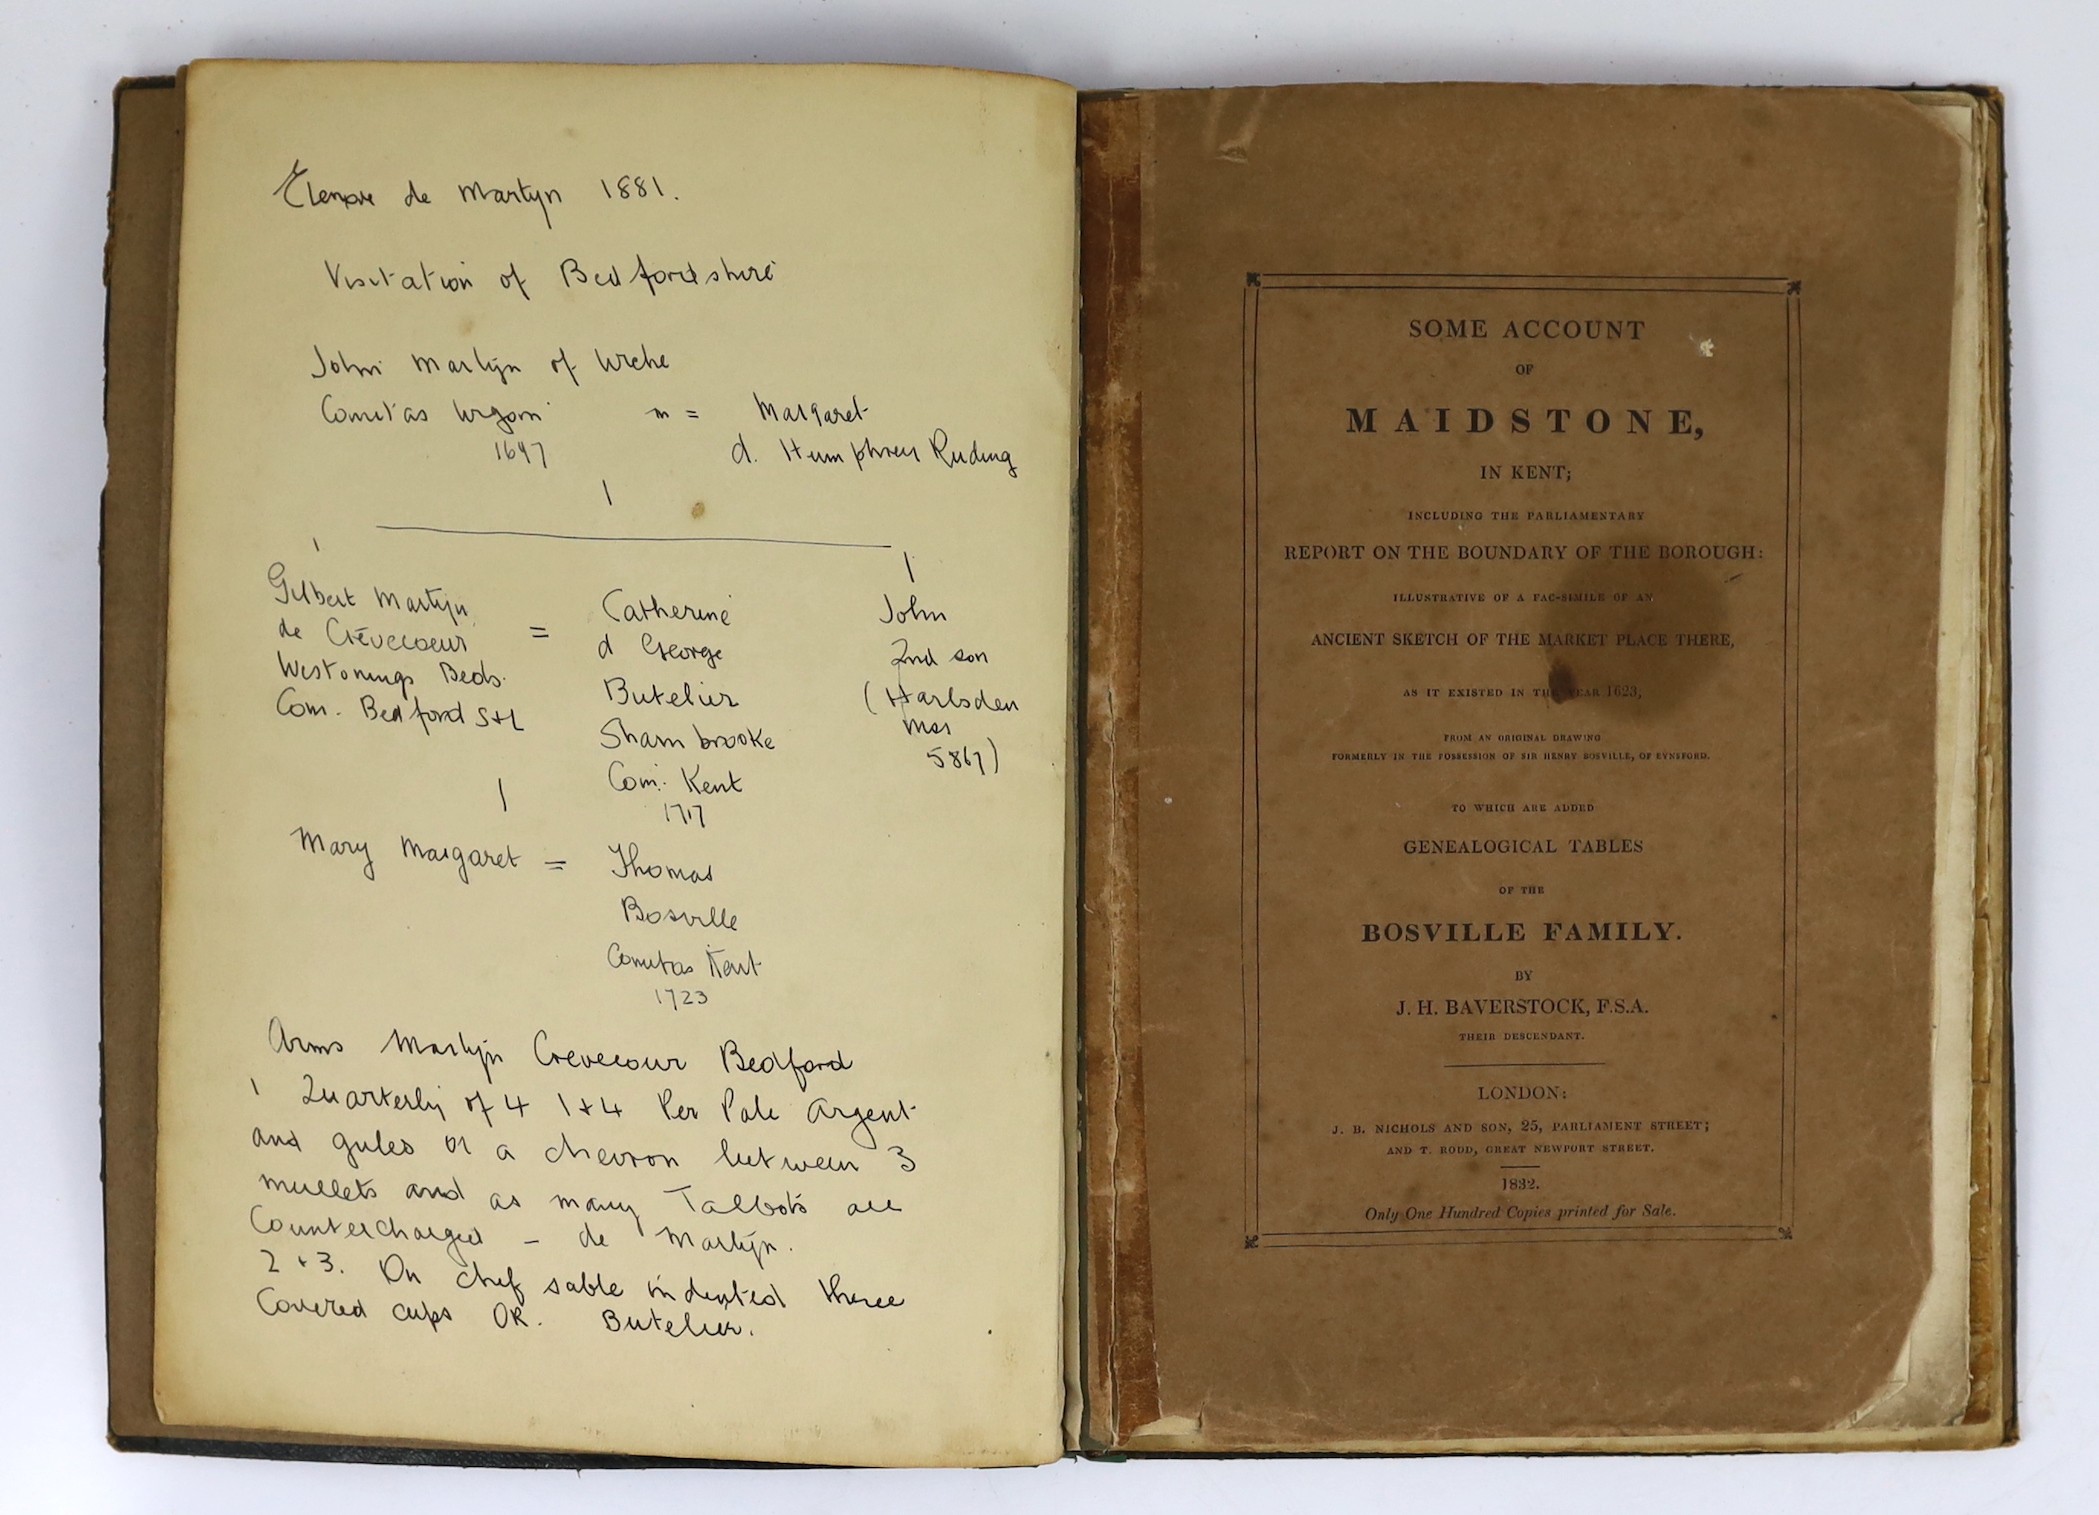 Elenore de Martyn 1881.
Visitation of Bedfordshire
John Martyn of
Comitas m = Margaret
1647 d. Humphrey Ruding
Gilbert Martyn = Catherine John
de Crèvecoeur d George 2nd son
Westonings Beds. Butelier (Harlsden
Com. Bedford S+L Shambrooke Mss
Com. Kent 5867)
1717
Mary Margaret = Thomas
Bosville
Comitas Kent
1723
Arms Martyn Crevecour Bedford
1 Quarterly of 4 1+4 Per Pale Argent
and gules or a chevron between 3
mullets and as many Talbots all
Countercharged – de Martyn.
2+3. On chef sable indented three
Covered cups OR. Butelier.
SOME ACCOUNT
OF
MAIDSTONE,
IN KENT;
INCLUDING THE PARLIAMENTARY
REPORT ON THE BOUNDARY OF THE BOROUGH:
ILLUSTRATIVE OF A FAC-SIMILE OF AN
ANCIENT SKETCH OF THE MARKET PLACE THERE,
AS IT EXISTED IN THE YEAR 1623,
FROM AN ORIGINAL DRAWING
FORMERLY IN THE POSSESSION OF SIR HENRY BOSVILLE, OF EYNSFORD.
TO WHICH ARE ADDED
GENEALOGICAL TABLES
OF THE
BOSVILLE FAMILY.
BY
J. H. BAVERSTOCK, F.S.A.
THEIR DESCENDANT.
LONDON:
J. B. NICHOLS AND SON, 25, PARLIAMENT STREET;
AND T. RODD, GREAT NEWPORT STREET.
1832.
Only One Hundred Copies printed for Sale.